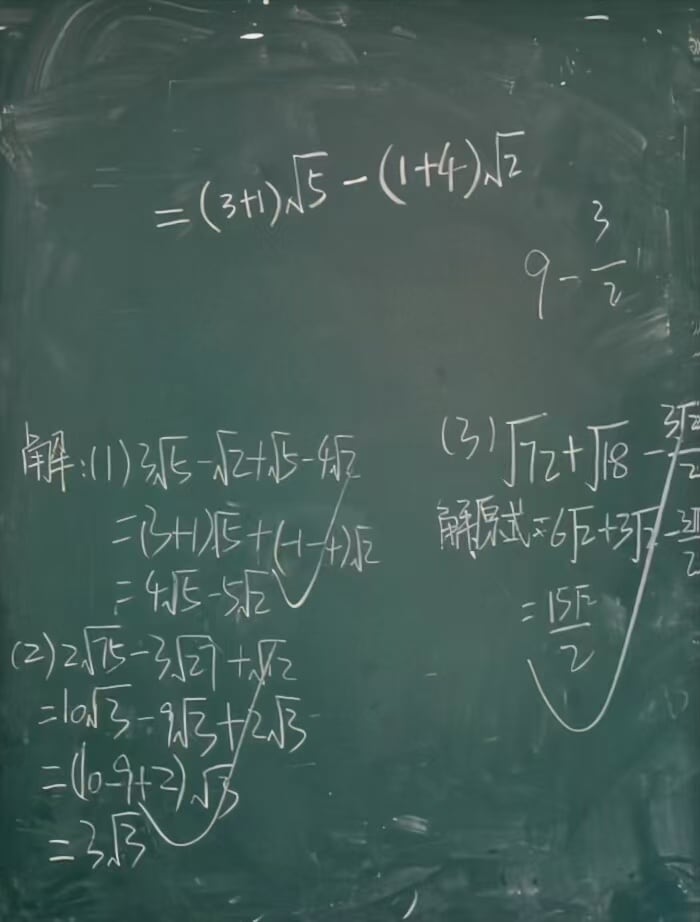 =(3+1)√5-(1+4)√2
9-3/2
解:(1)3√5-√2+√5-4√2
=(3+1)√5+(-1-4)√2
=4√5-5√2
(2)2√75-3√27+√12
=10√3-9√3+2√3
=(10-9+2)√3
=3√3
(3)√72+√18-3√2/2
解原式=6√2+3√2-3√2/2
=15√2/2